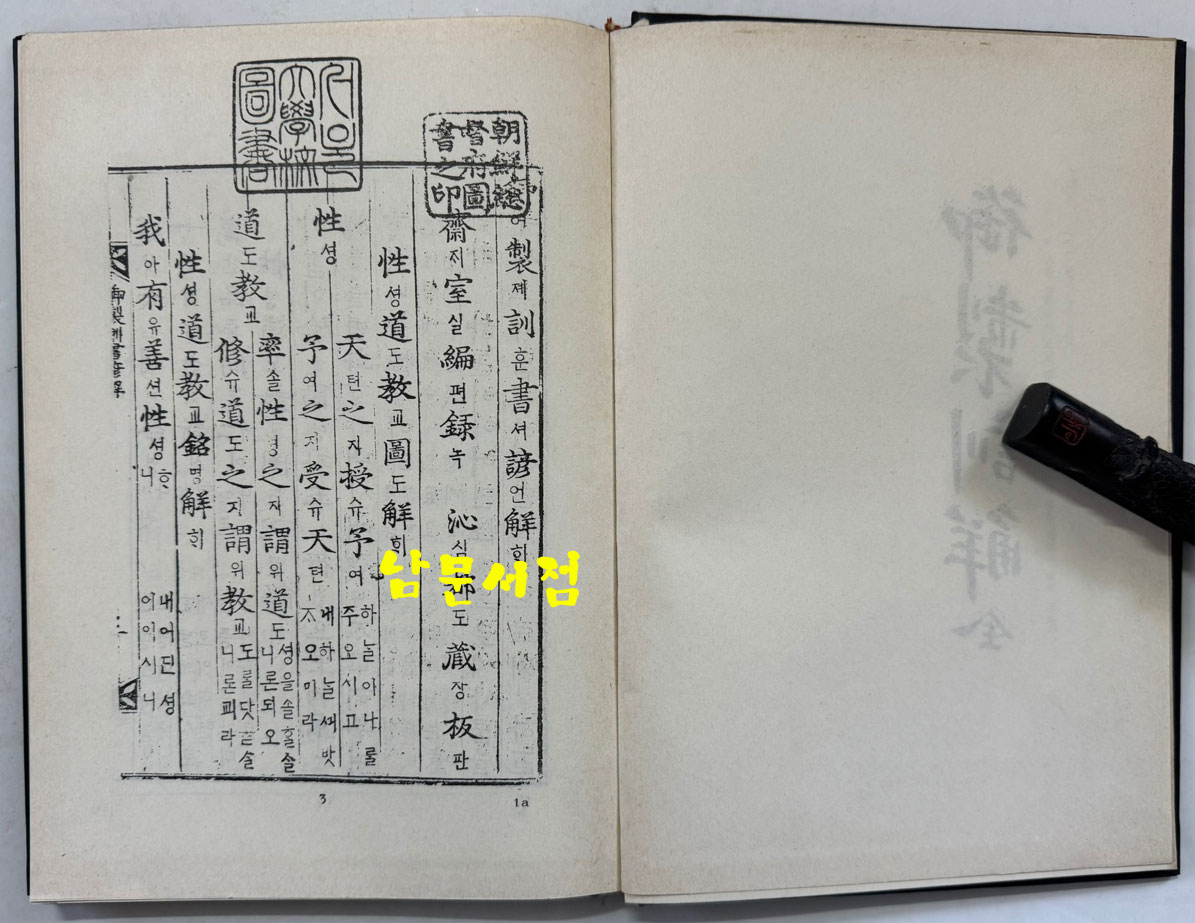 서울大學校圖書
朝鮮總督府圖書之印
어製졔訓훈書셔諺언解ᄒᆡ
齋ᄌᆡ室실編편錄녹 沁심都도藏장板판
性셩道도教교圖도解ᄒᆡ
性셩
天텬之지授슈予여 하ᄂᆞᆯ아나ᄅᆞᆯ주오시고
予여之지受슈天텬 내하ᄂᆞᆯᄭᅴ밧ᄌᆞ오미라
道도教교
率솔性셩之지謂위道도 셩을솔ᄒᆞᆯ솔니론되오
修슈道도之지謂위教교 도ᄅᆞᆯ닷
니론괴라
性셩道도教교銘명解ᄒᆡ
我아有유善션性셩ᄒᆞ니 내어딘셩어이시니
남문서점
3
1a